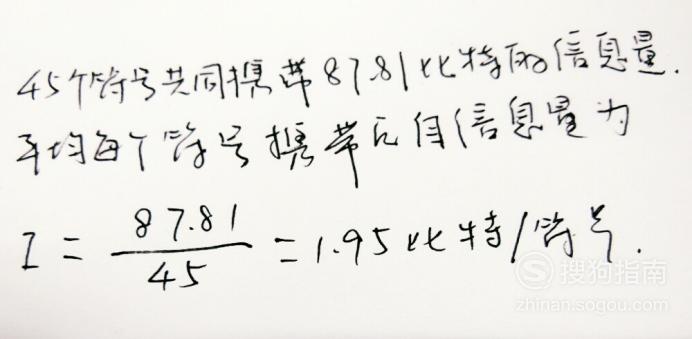 45个符号共同携带87.81比特的信息量.
平均每个符号携带的自信息量为
I = 87.81/45 = 1.95比特/符号.
搜狗指南
zhinan.sogou.com